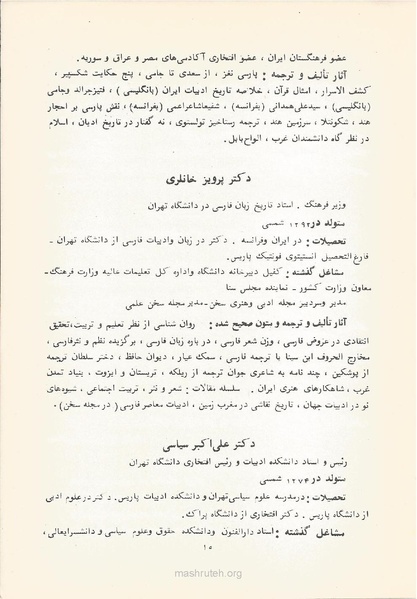 عضو فرهنگستان ایران ، عضو افتخاری آکادمی‌های مصر و عراق و سوریه.
آثار تألیف و ترجمه : پارسی نغز ، از سعدی تا جامی ، پنج حکایت شکسپیر ،
کشف الاسرار ، امثال قرآن ، خلاصه تاریخ ادبیات ایران (بانگلیسی ) ، فتیزجرالد وجامی
(بانگلیسی) ، سیدعلی‌همدانی (بفرانسه) ، شفیعاشاعراعمی (بفرانسه) ، نقش پارسی بر احجار
هند ، شکونتلا ، سرزمین هند ، ترجمه رستاخیز تولستوی ، نه گفتار در تاریخ ادیان ، اسلام
در نظر گاه دانشمندان غرب ، الواح‌بابل .
دکتر پرویز خانلری
وزیر فرهنگ . استاد تاریخ زبان فارسی در دانشگاه تهران
متولد در ۱۲۹۲ شمسی
تحصیلات : در ایران وفرانسه . دکتر در زبان وادبیات فارسی از دانشگاه تهران -
فارغ‌التحصیل انستیتوی فونتیک پاریس.
مشاغل گذشته : کفیل دبیرخانه دانشگاه واداره کل تعلیمات عالیه وزارت فرهنگ-
معاون وزارت کشور - نماینده مجلس سنا
مدیر وسردبیر مجله ادبی وهنری سخن-مدیر مجله سخن علمی
آثار تألیف و ترجمه و متون صحیح شده : روان شناسی از نظر تعلیم و تربیت،تحقیق
انتقادی در عروض فارسی ، وزن شعر فارسی ، در باره زبان فارسی ، برگزیده نظم و نثرفارسی ،
مخارج الحروف ابن سینا با ترجمه فارسی ، سمک عیار ، دیوان حافظ ، دختر سلطان ترجمه
از پوشکین ، چند نامه به شاعری جوان ترجمه از ریلکه ، تریستان و ایزوت ، بنیاد تمدن
غرب ، شاهکارهای هنری ایران . سلسله مقالات : شعر و نثر ، تربیت اجتماعی ، شیوه‌های
نو در ادبیات جهان ، تاریخ نقاشی در مغرب زمین ، ادبیات معاصر فارسی ( در مجله سخن) .
دکتر علی‌اکبر سیاسی
رئیس و استاد دانشکده ادبیات و رئیس افتخاری دانشگاه تهران
متولد در ۱۲۷۴ شمسی
تحصیلات : درمدرسه علوم سیاسی‌تهران و دانشکده ادبیات پاریس. دکتر درعلوم ادبی
از دانشگاه پاریس . دکتر افتخاری از دانشگاه پراگ.
مشاغل گذشته : استاد دارالفنون ودانشکده حقوق وعلوم سیاسی و دانشسرایعالی ،
۱۵
mashruteh.org